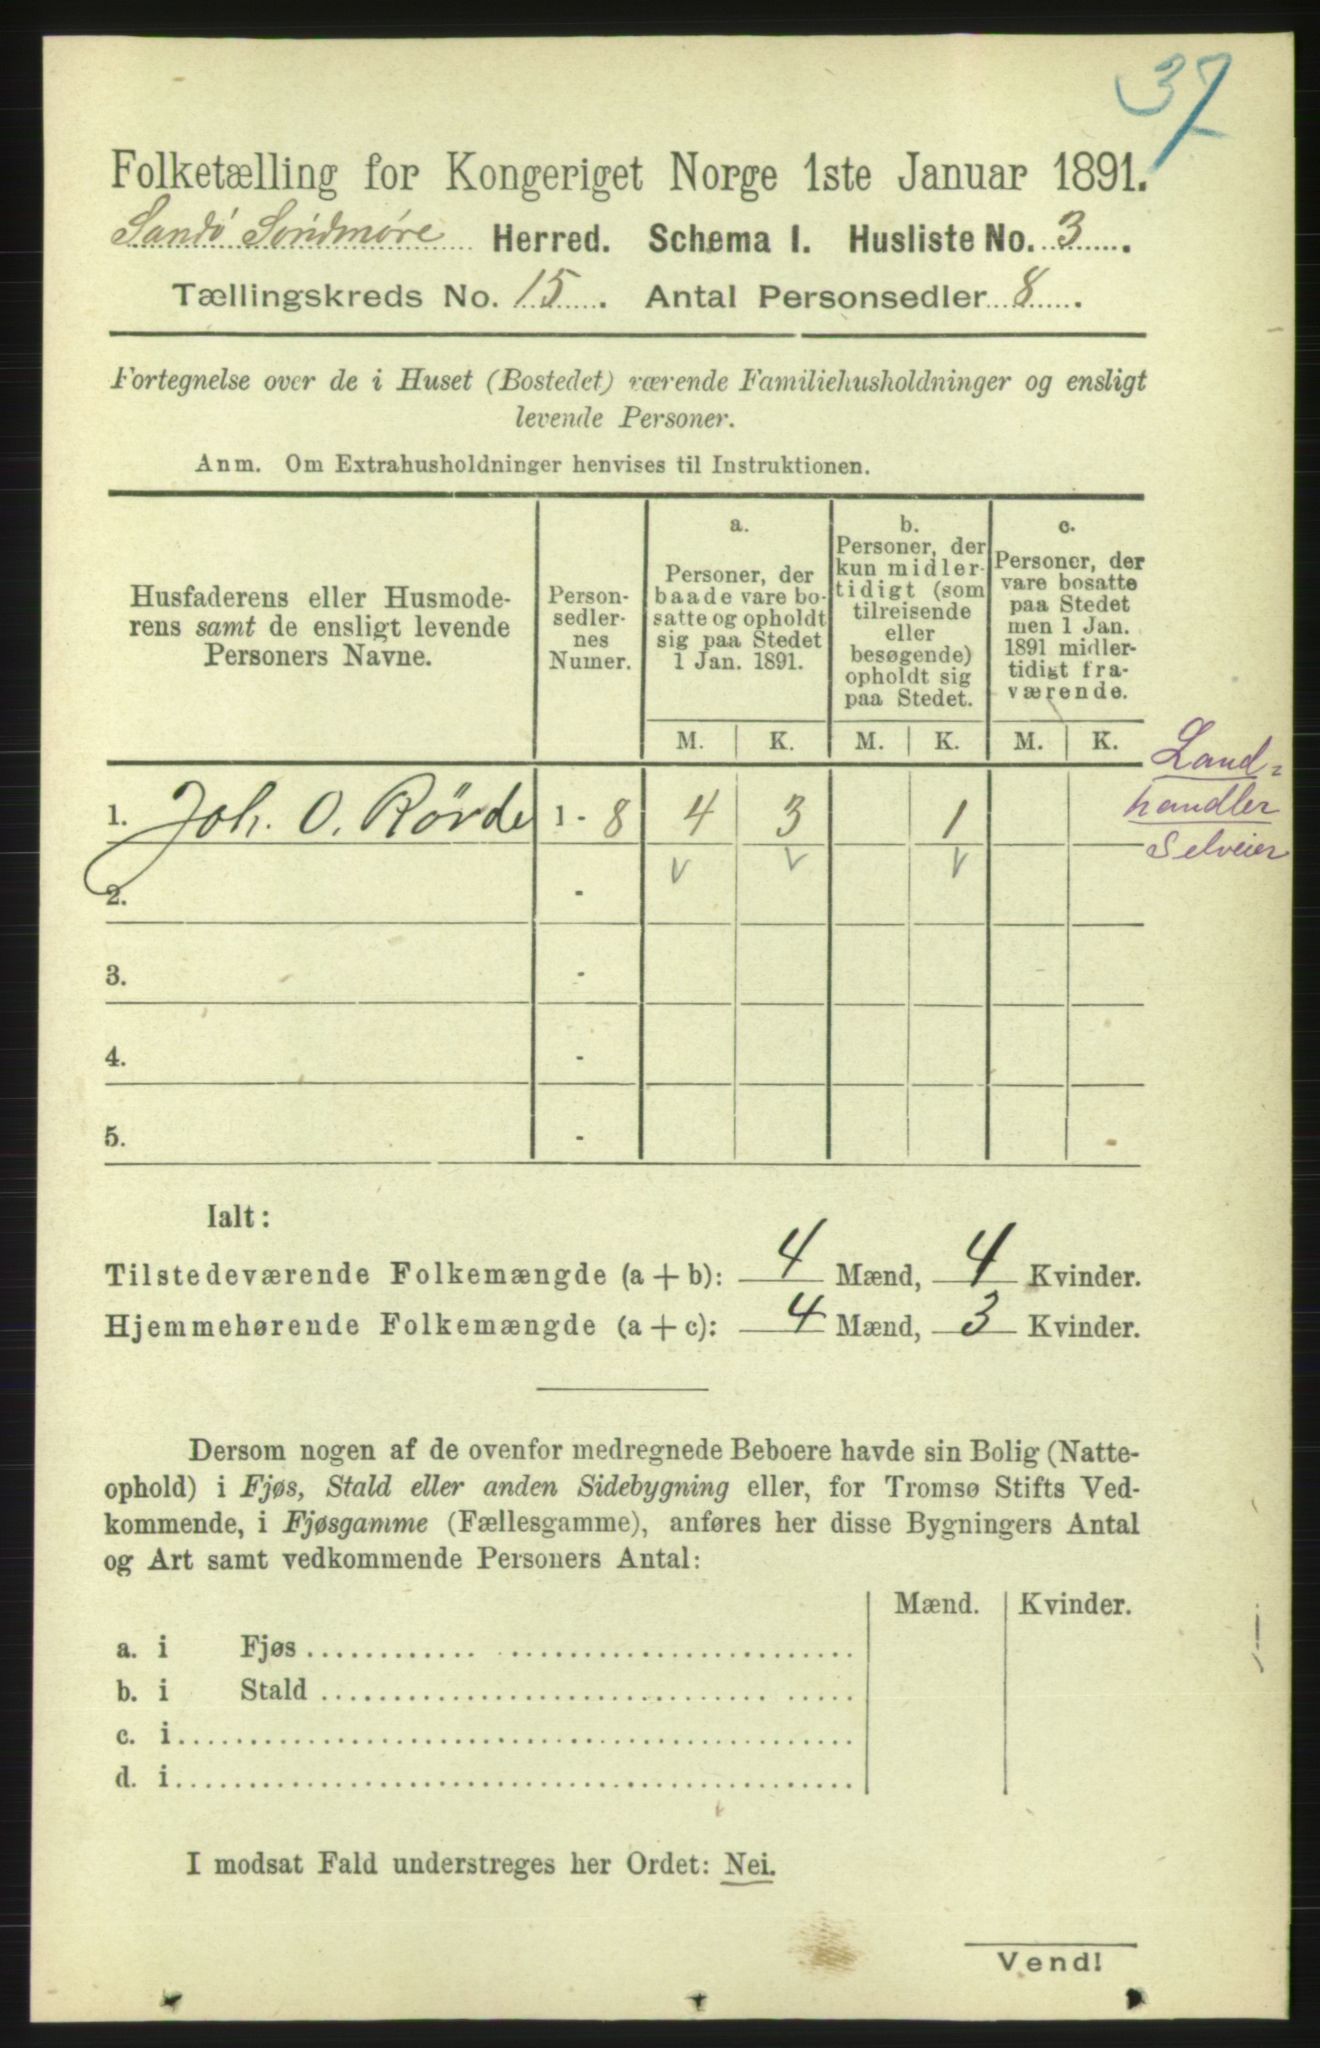 37
Folketælling for Kongeriget Norge 1ste Januar 1891.
Sandö Söndmøre Herred. Schema I. Husliste No. 3.
Tællingskreds No. 15. Antal Personsedler 8.
Fortegnelse over de i Huset (Bostedet) værende Familiehusholdninger og ensligt
levende Personer.
Anm. Om Extrahusholdninger henvises til Instruktionen.
Husfaderens eller Husmode-
rens samt de ensligt levende
Personers Navne.
Person-
sedler-
nes
Numer.
a.
Personer, der
baade vare bo-
satte og opholdt
sig paa Stedet
1 Jan. 1891.
b.
Personer, der
kun midler-
tidigt (som
tilreisende
eller
besøgende)
opholdt sig
paa Stedet.
c.
Personer, der
vare bosatte
paa Stedet
men 1 Jan.
1891 midler-
tidigt fra-
værende.
M. K. M. K. M. K.
1. Joh. O. Rörde 1 - 8 4 3 1
Land-
handler
Selveier
2. -
3. -
4. -
5. -
Ialt:
Tilstedeværende Folkemængde (a + b): 4 Mænd, 4 Kvinder.
Hjemmehørende Folkemængde (a + c): 4 Mænd, 3 Kvinder.
Dersom nogen af de ovenfor medregnede Beboere havde sin Bolig (Natte-
ophold) i Fjøs, Stald eller anden Sidebygning eller, for Tromsø Stifts Ved-
kommende, i Fjøsgamme (Fællesgamme), anføres her disse Bygningers Antal
og Art samt vedkommende Personers Antal:
Mænd. Kvinder.
a. i Fjøs
b. i Stald
c. i
d. i
I modsat Fald understreges her Ordet: Nei.
Vend!